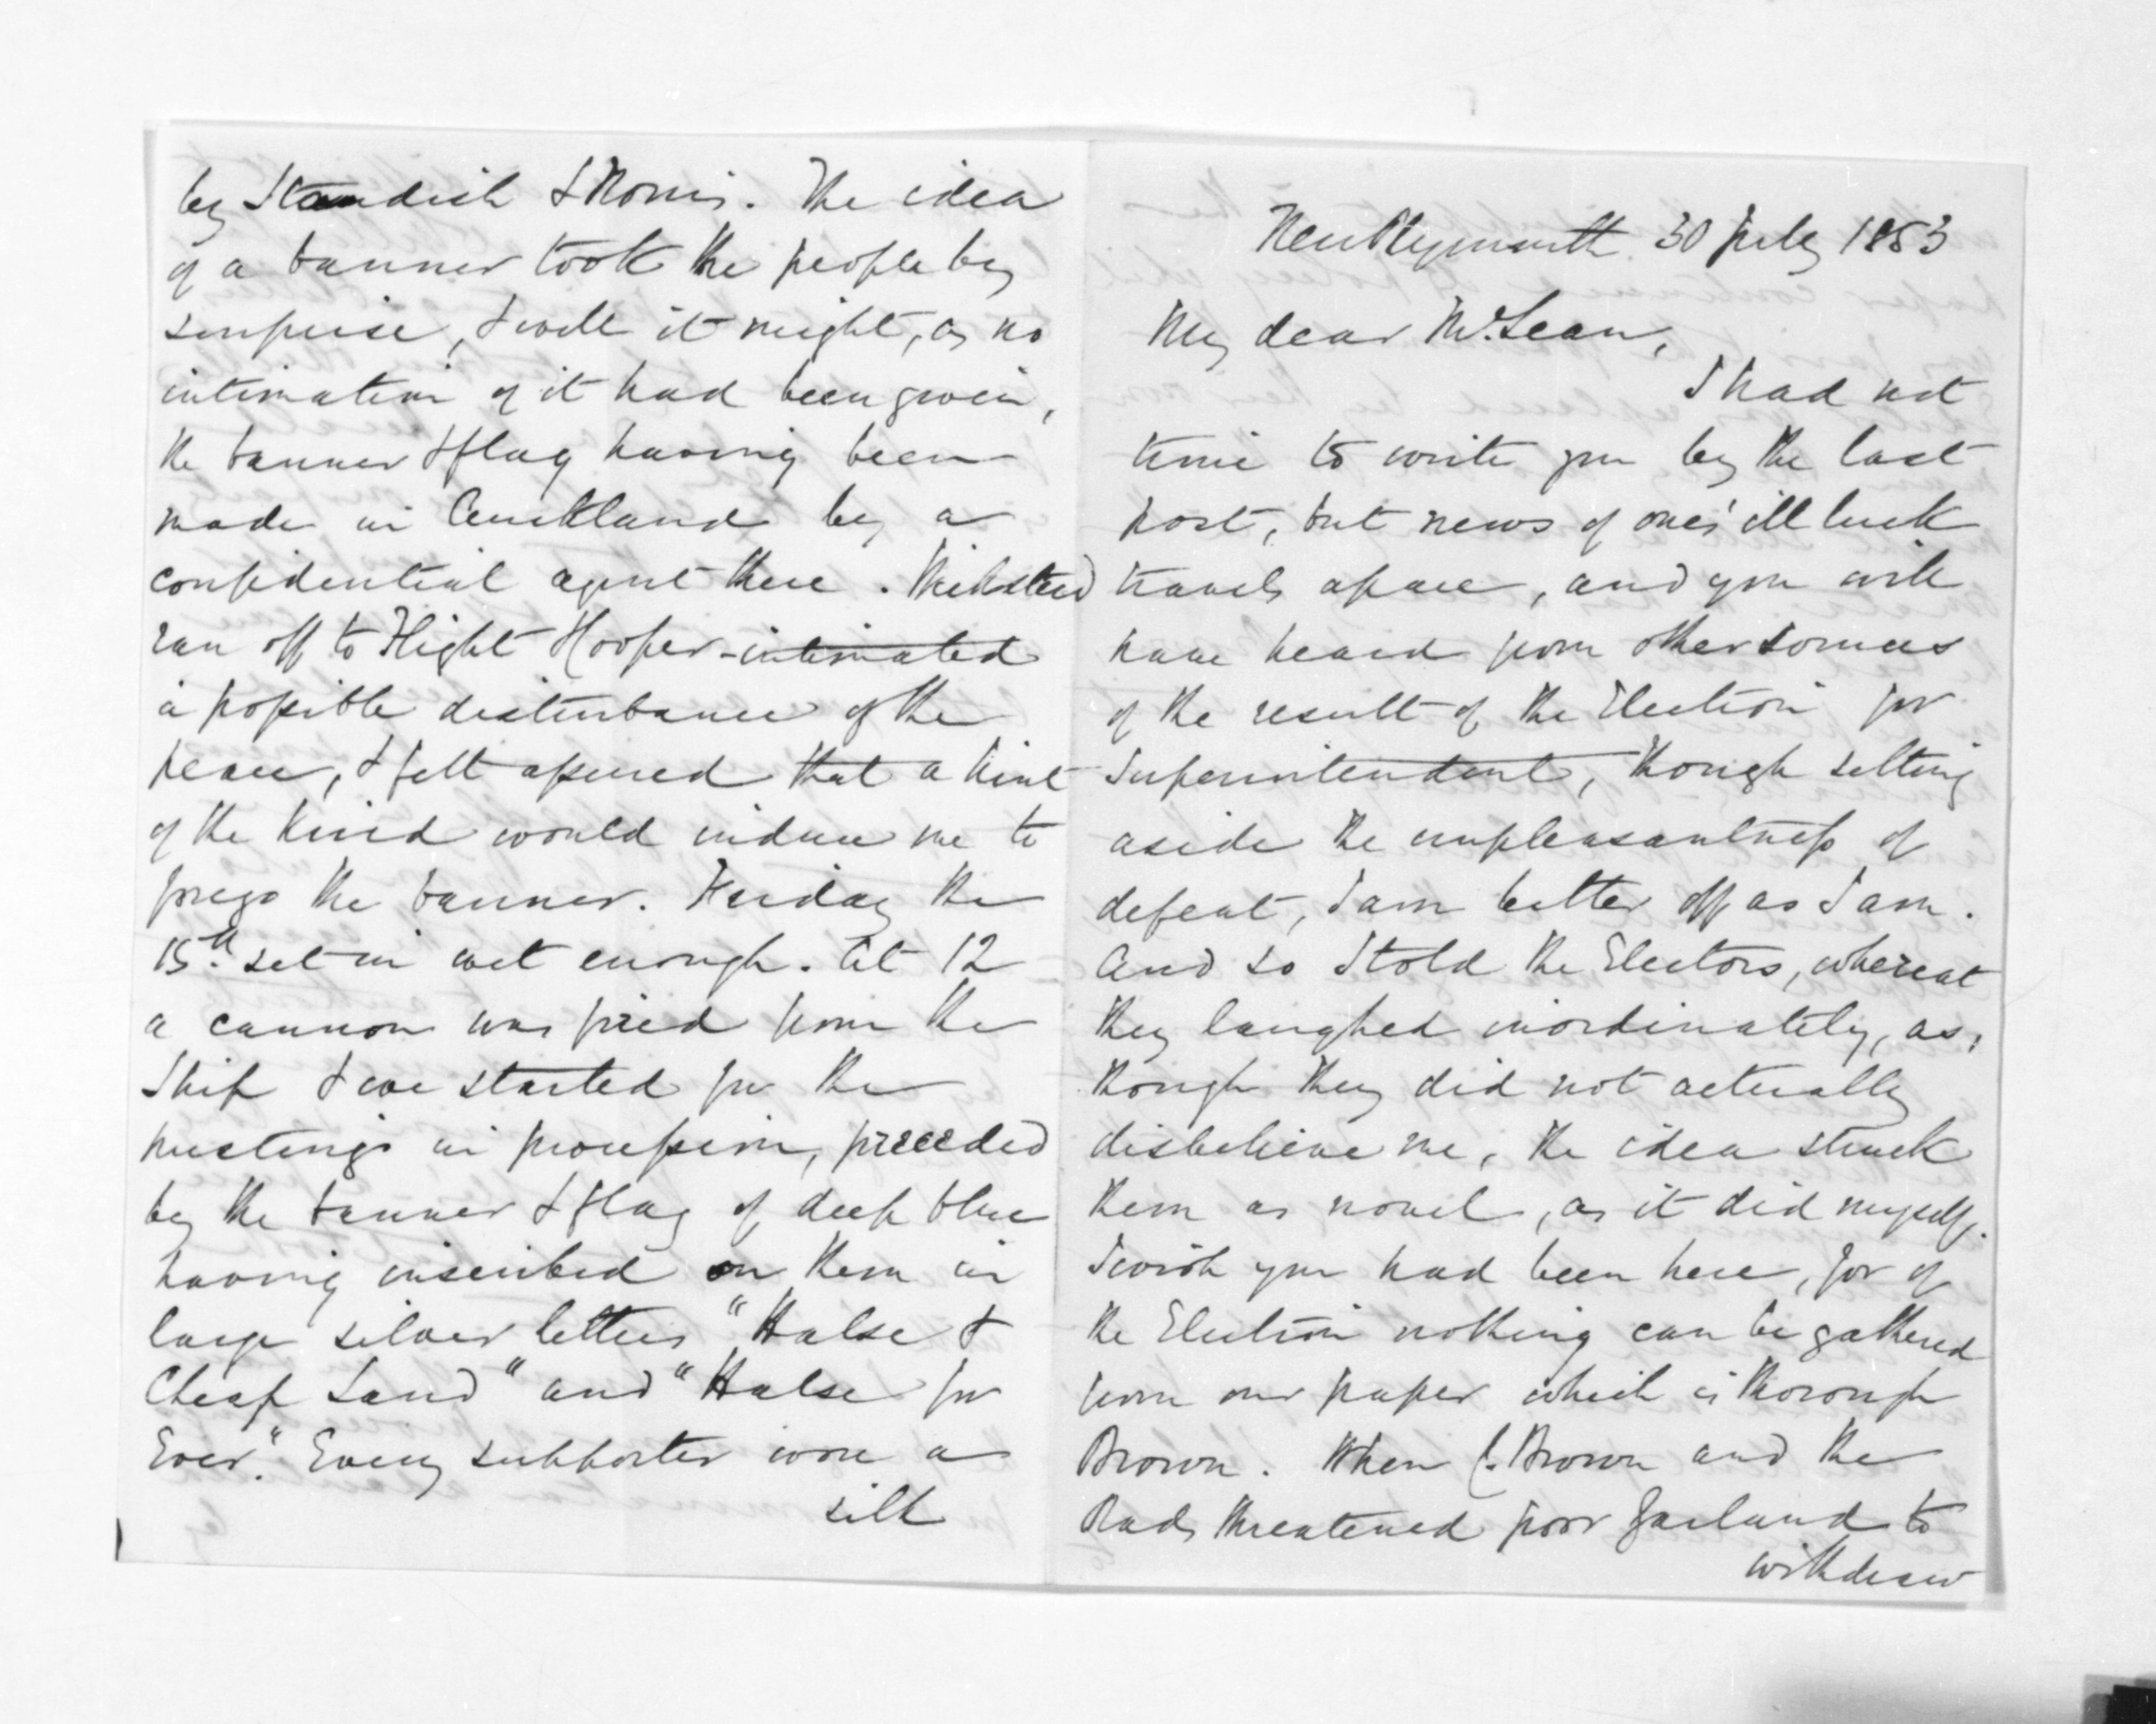 New Plymouth 30 July 1853
My dear McLean,
I had not
time to write you by the last
post, but news of ones' ill luck
travels apace, and you will
have heard from other sources
of the result of the Election for
Superintendent, though setting
aside the unpleasantness of
defeat, I am better off as I am.
And so I told the Electors, whereat
they laughed inordinately, as,
though they did not actually
disbelieve me, the idea struck
them as novel, as it did myself.
I wish you had been here, for of
the Election nothing can be gathered
from our paper which is thorough
Brown. When C. Brown and the
Rads threatened poor Garland to
withdraw
by Standish & Norris. The idea
of a banner took the people by
surprise, & well it might, as no
intimation of it had been given,
the banner & flag having been
made in Auckland by a
confidential agent there. Wicksteed
ran off to Flight - Hooper - intimated
a possible disturbance of the
peace, & felt assured that a hint
of the kind would induce me to
forego the banner. Friday the
15th. set in wet enough. At 12
a cannon was fired from the
Ship & we started for the
hustings in procession, preceded
by the banner & flag of deep blue
having inscribed on them in
large silver letters "Halse &
Cheap Land" and "Halse for
Ever." Every supporter wore a
silk